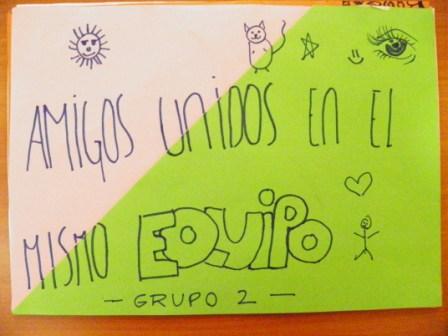 AMIGOS UNIDOS EN EL
MISMO EQUIPO
- GRUPO 2 -